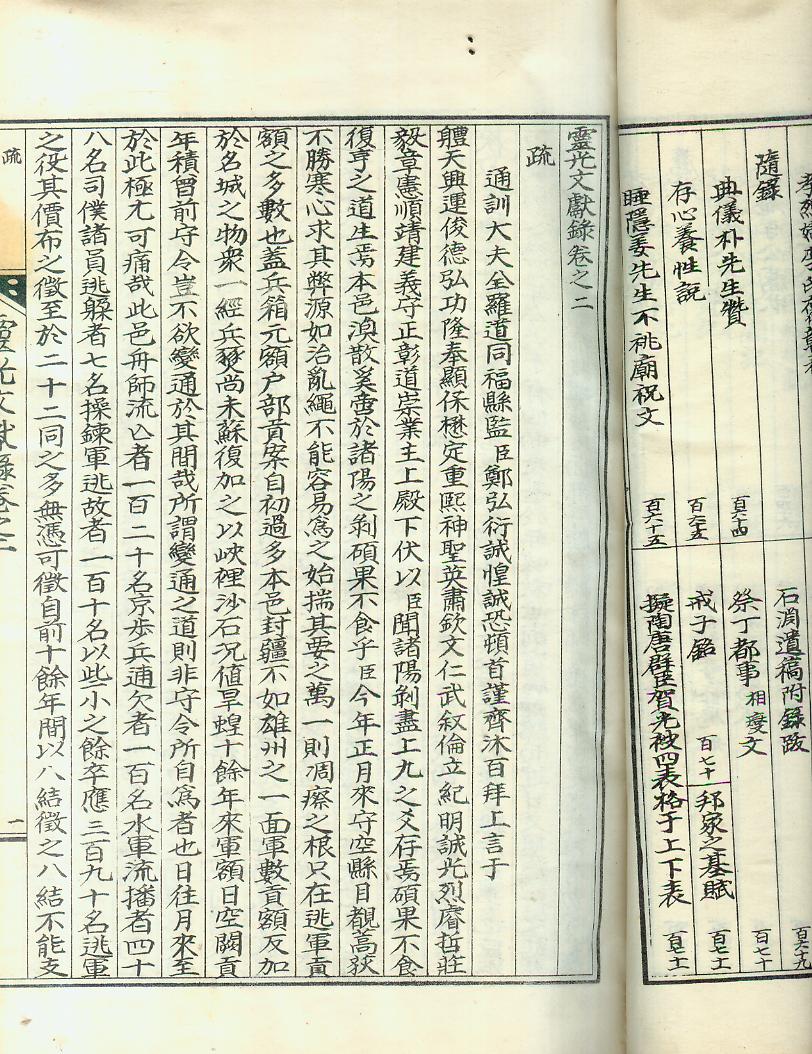 隨錄
典儀朴先生贊 百六十四
存心養性說 百六十五
睡隱姜先生不祧廟祝文 百六十五
石澗遺稿附錄跋 百六十九
祭丁都事相夔文 百七十
戒子銘 百七十
邦家之基賦 百七十一
擬陶唐群臣賀光被四表格于上下表 百七十一
靈光文獻錄卷之二
疏
通訓大夫全羅道同福縣監臣鄭弘衍誠惶誠恐頓首謹齊沐百拜上言于
體天興運俊德弘功隆奉顯保懋定重熙神聖英肅欽文仁武叙倫立紀明誠光烈睿哲莊
毅章憲順靖建義守正彰道崇業主上殿下伏以臣聞諸陽剝盡上九之爻存焉碩果不食
復亨之道生焉本邑渙散奚啻於諸陽之剝碩果不食乎臣今年正月來守空縣目覩蒿狄
不勝寒心求其弊源如治亂繩不能容易爲之始揣其要之萬一則凋瘵之根只在逃軍貢
額之多數也蓋兵箱元額户部貢案自初過多本邑封疆不如雄州之一面軍數貢額反加
於名城之物衆一經兵燹尚未蘇復加之以峽裡沙石况値旱蝗十餘年來軍額日空闕貢
年積曾前守令豈不欲變通於其間哉所謂變通之道則非守令所自爲者也日往月來至
於此極尤可痛哉此邑舟師流亡者一百二十名京步兵逋欠者一百名水軍流播者四十
八名司僕諸員逃躱者七名操鍊軍逃故者一百十名以此小之餘卒應三百九十名逃軍
之役其價布之徵至於二十二同之多無憑可徵自前十餘年間以八結徵之八結不能支
疏
靈光文獻錄卷之二
一